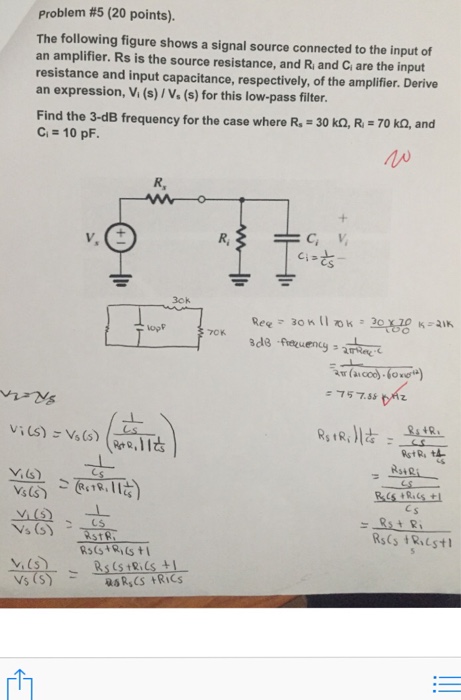 Problem #5 (20 points).
The following figure shows a signal source connected to the input of
an amplifier. Rs is the source resistance, and Rᵢ and Cᵢ are the input
resistance and input capacitance, respectively, of the amplifier. Derive
an expression, Vᵢ (s) / Vₛ (s) for this low-pass filter.
Find the 3-dB frequency for the case where Rₛ = 30 kΩ, Rᵢ = 70 kΩ, and
Cᵢ = 10 pF.
20
Rₛ
+
Vₛ
Rᵢ
Cᵢ Vᵢ
Ci = 1/CS -
30K
10pF
70K
Req = 30K || 70K = 30 x 70 / 100 K = 21K
3dB frequency = 1 / 2π Req·C
= 1 / 2π(21000)·(10x10⁻¹²)
= 757.88 KHz
Vi = Vs
Vi(s) = Vs(s) ( 1/CS / Rs+Ri || 1/CS )
Vi(s) / Vs(s) = 1/CS / (Rs+Ri || 1/CS)
Vi(s) / Vs(s) = 1/CS / Rs+Ri / RsCS+RiCS+1
Vi(s) / Vs(s) = RsCS+RiCS+1 / RsCS+RiCS
Rs+Ri || 1/CS = Rs+Ri / CS / Rs+Ri+1/CS
= Rs+Ri / CS / RsCS+RiCS+1 / CS
= Rs+Ri / RsCS+RiCS+1